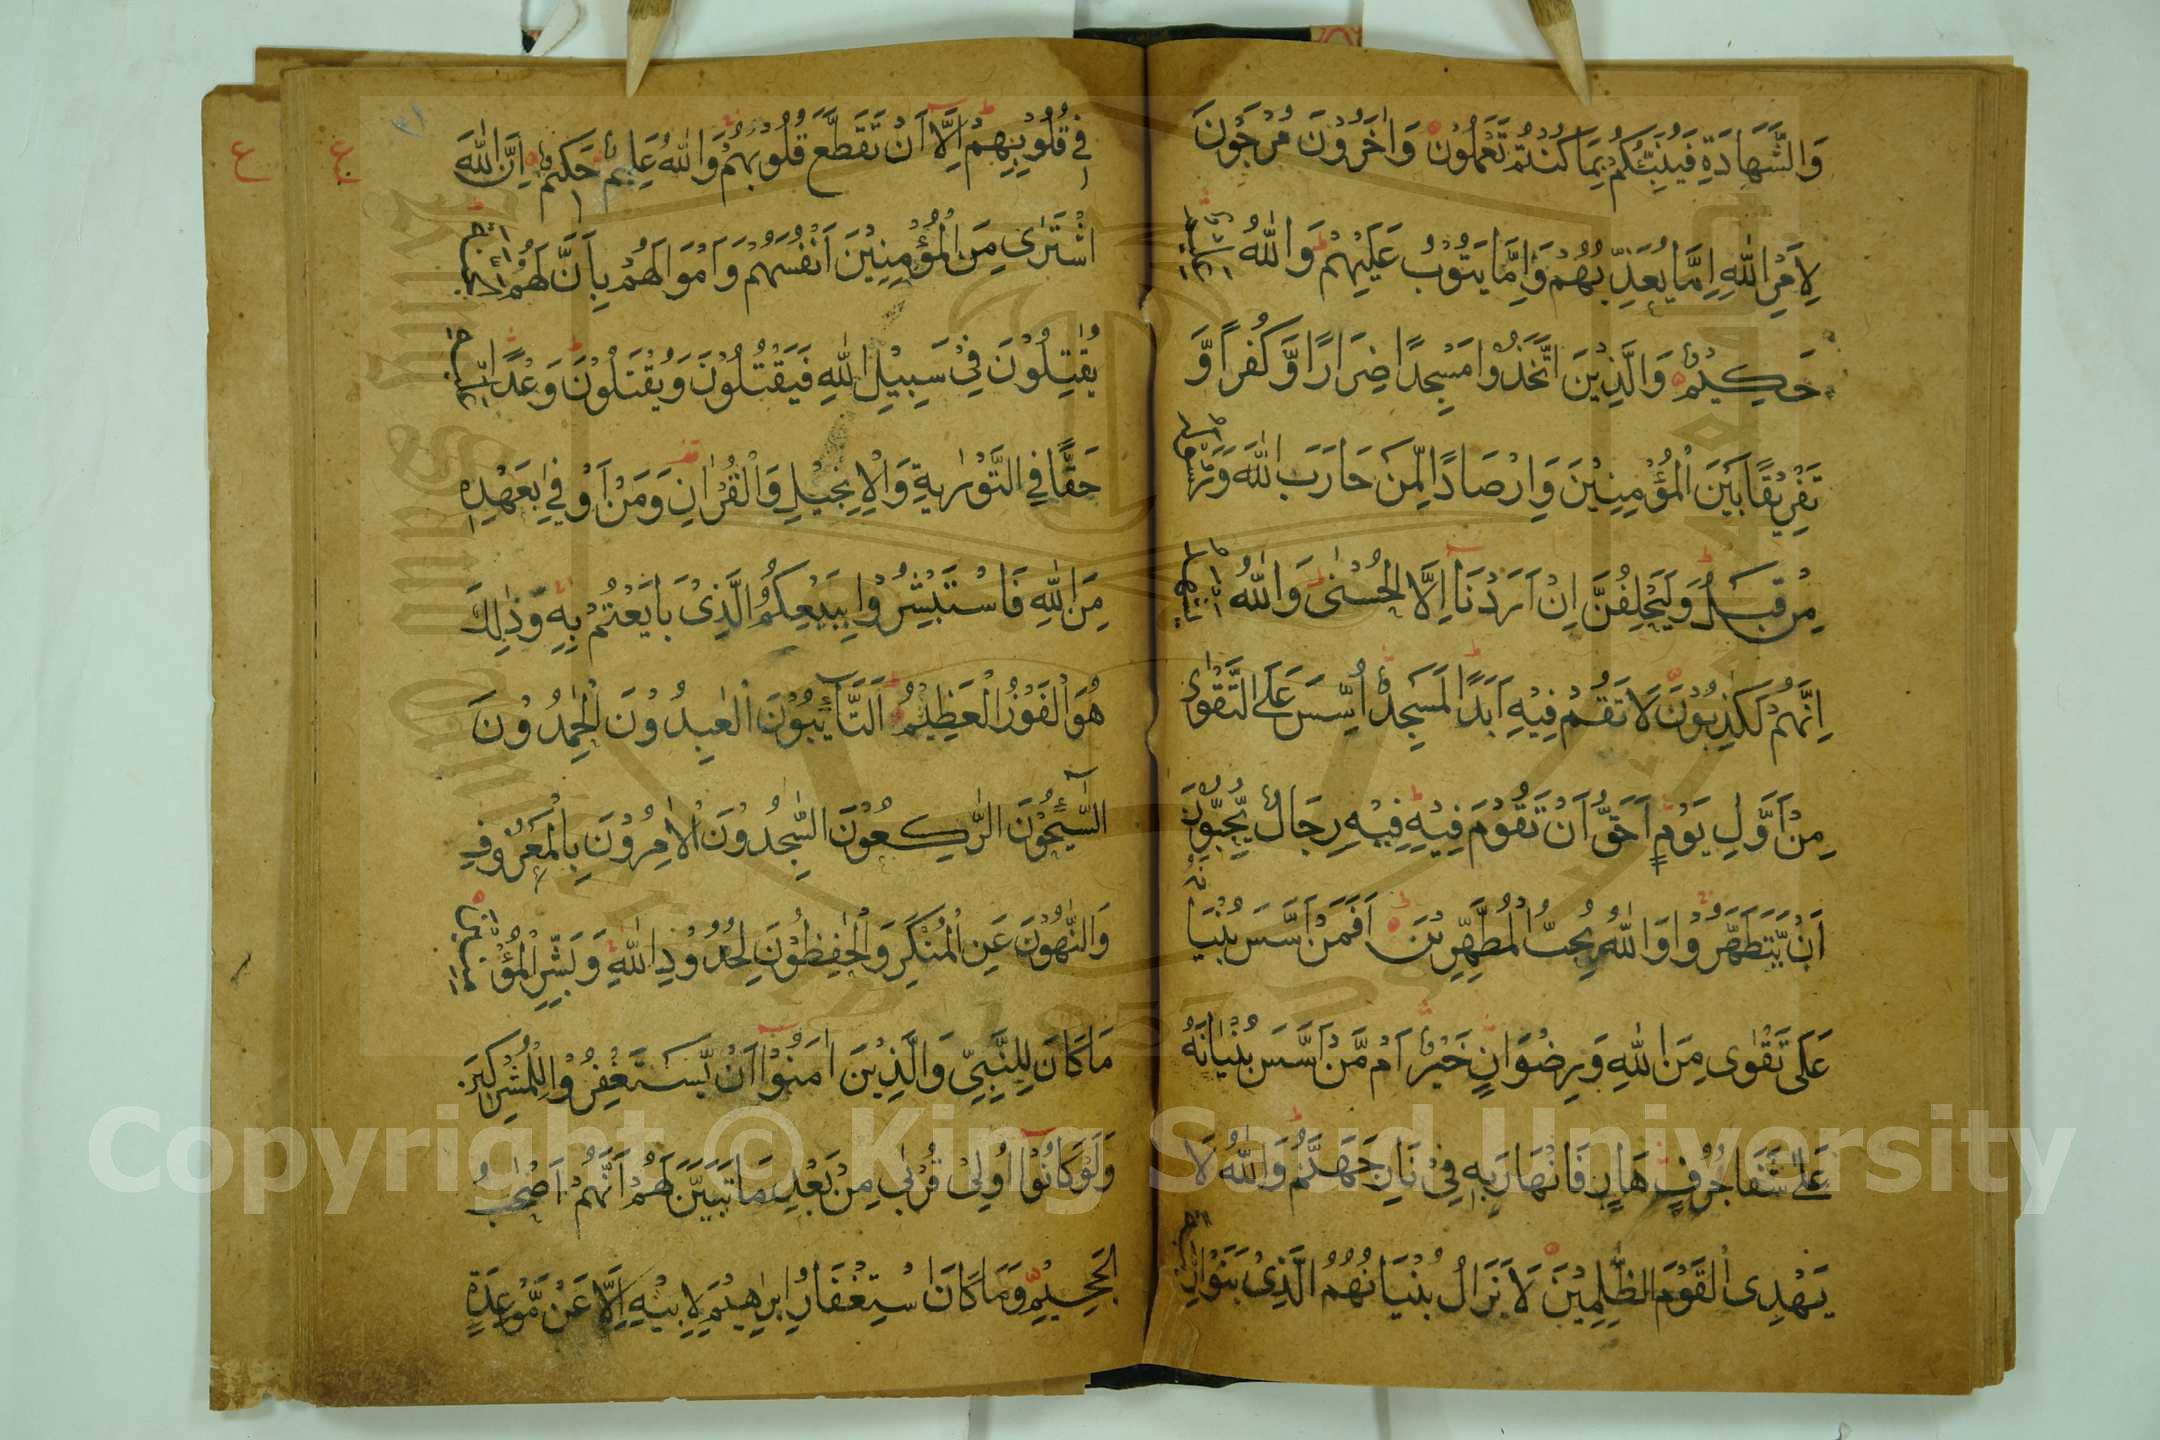 وَالشَّهَادَةِ فَيُنَبِّئُكُمْ بِمَا كُنْتُمْ تَعْمَلُوْنَ وَاٰخَرُوْنَ مُرْجَوْنَ
لِاَمْرِ اللّٰهِ اِمَّا يُعَذِّبُهُمْ وَاِمَّا يَتُوْبُ عَلَيْهِمْ وَاللّٰهُ عَلِيْمٌ
حَكِيْمٌ وَالَّذِيْنَ اتَّخَذُوْا مَسْجِدًا ضِرَارًا وَّكُفْرًا وَّ
تَفْرِيْقًا بَيْنَ الْمُؤْمِنِيْنَ وَاِرْصَادًا لِّمَنْ حَارَبَ اللّٰهَ وَرَسُوْلَهٗ
مِنْ قَبْلُ وَلَيَحْلِفُنَّ اِنْ اَرَدْنَا اِلَّا الْحُسْنٰى وَاللّٰهُ يَشْهَدُ
اِنَّهُمْ لَكٰذِبُوْنَ لَا تَقُمْ فِيْهِ اَبَدًا لَمَسْجِدٌ اُسِّسَ عَلَى التَّقْوٰى
مِنْ اَوَّلِ يَوْمٍ اَحَقُّ اَنْ تَقُوْمَ فِيْهِ فِيْهِ رِجَالٌ يُّحِبُّوْنَ
اَنْ يَّتَطَهَّرُوْا وَاللّٰهُ يُحِبُّ الْمُطَّهِّرِيْنَ اَفَمَنْ اَسَّسَ بُنْيَانَهٗ
عَلٰى تَقْوٰى مِنَ اللّٰهِ وَرِضْوَانٍ خَيْرٌ اَمْ مَّنْ اَسَّسَ بُنْيَانَهٗ
عَلٰى شَفَا جُرُفٍ هَارٍ فَانْهَارَ بِهٖ فِيْ نَارِ جَهَنَّمَ وَاللّٰهُ لَا
يَهْدِى الْقَوْمَ الظّٰلِمِيْنَ لَا يَزَالُ بُنْيَانُهُمُ الَّذِيْ بَنَوْا رِيْبَةً
فِيْ قُلُوْبِهِمْ اِلَّا اَنْ تَقَطَّعَ قُلُوْبُهُمْ وَاللّٰهُ عَلِيْمٌ حَكِيْمٌ اِنَّ اللّٰهَ
اشْتَرٰى مِنَ الْمُؤْمِنِيْنَ اَنْفُسَهُمْ وَاَمْوَالَهُمْ بِاَنَّ لَهُمُ الْجَنَّةَ
يُقَاتِلُوْنَ فِيْ سَبِيْلِ اللّٰهِ فَيَقْتُلُوْنَ وَيُقْتَلُوْنَ وَعْدًا عَلَيْهِ
حَقًّا فِي التَّوْرٰىةِ وَالْاِنْجِيْلِ وَالْقُرْاٰنِ وَمَنْ اَوْفٰى بِعَهْدِهٖ
مِنَ اللّٰهِ فَاسْتَبْشِرُوْا بِبَيْعِكُمُ الَّذِيْ بَايَعْتُمْ بِهٖ وَذٰلِكَ
هُوَ الْفَوْزُ الْعَظِيْمُ اَلتَّآئِبُوْنَ الْعٰبِدُوْنَ الْحٰمِدُوْنَ
السَّآئِحُوْنَ الرّٰكِعُوْنَ السّٰجِدُوْنَ الْاٰمِرُوْنَ بِالْمَعْرُوْفِ
وَالنَّاهُوْنَ عَنِ الْمُنْكَرِ وَالْحٰفِظُوْنَ لِحُدُوْدِ اللّٰهِ وَبَشِّرِ الْمُؤْمِنِيْنَ
مَا كَانَ لِلنَّبِيِّ وَالَّذِيْنَ اٰمَنُوْا اَنْ يَّسْتَغْفِرُوْا لِلْمُشْرِكِيْنَ
وَلَوْ كَانُوْا اُولِيْ قُرْبٰى مِنْ بَعْدِ مَا تَبَيَّنَ لَهُمْ اَنَّهُمْ اَصْحٰبُ
الْجَحِيْمِ وَمَا كَانَ اسْتِغْفَارُ اِبْرٰهِيْمَ لِاَبِيْهِ اِلَّا عَنْ مَّوْعِدَةٍ
ع
ع
Copyright © King Saud University